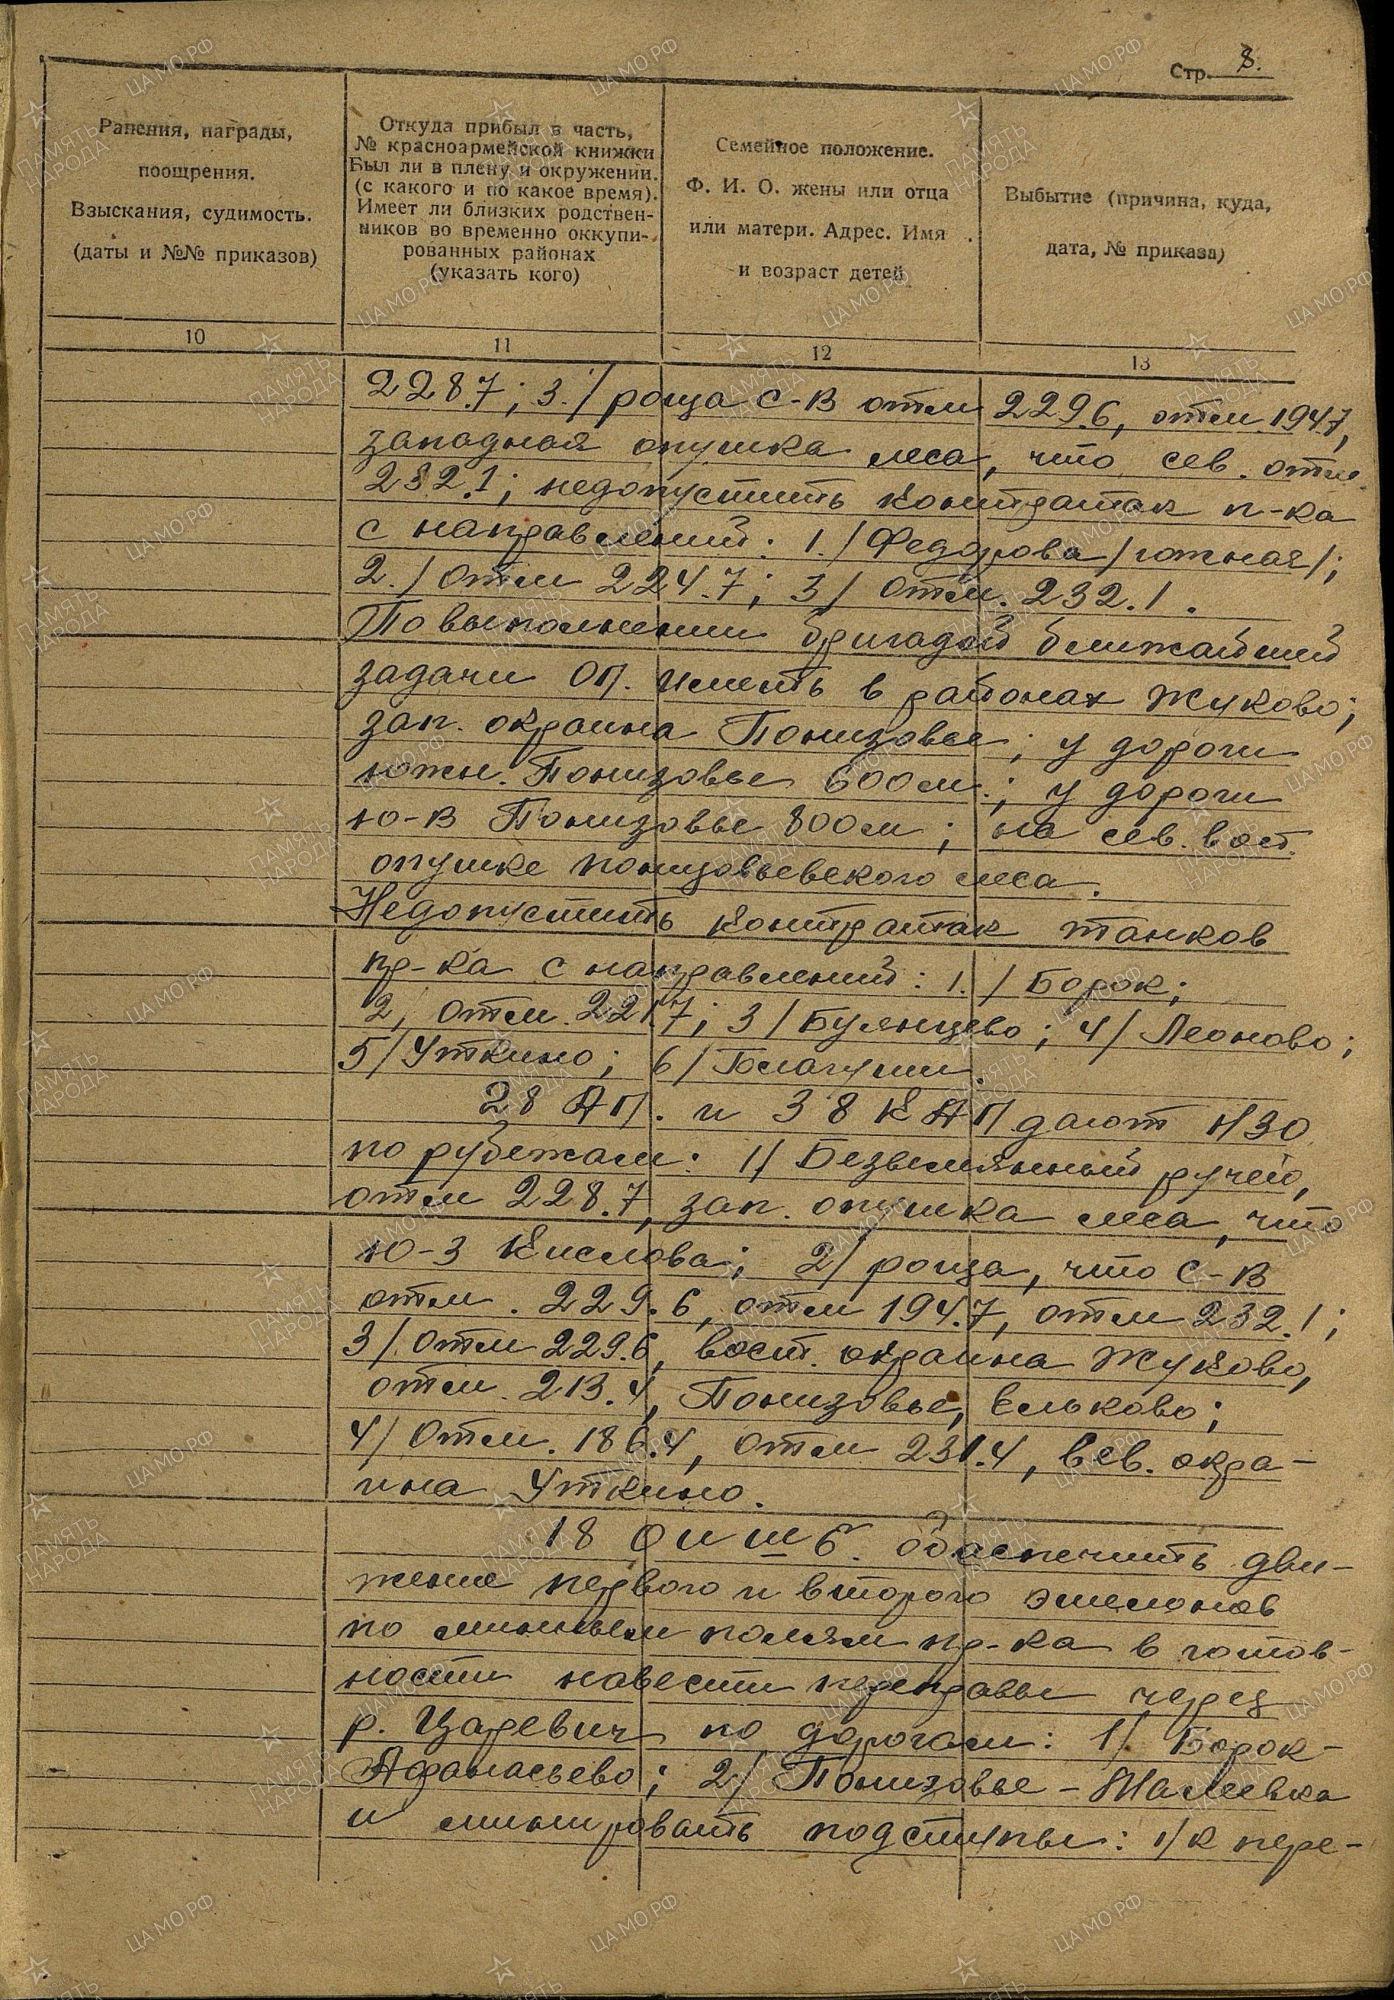 Стр. 8.
Ранения, награды,
поощрения.
Взыскания, судимость.
(даты и №№ приказов)
Откуда прибыл в часть,
№ красноармейской книжки
Был ли в плену и окружении.
(с какого и по какое время).
Имеет ли близких родствен-
ников во временно оккупи-
рованных районах
(указать кого)
Семейное положение.
Ф. И. О. жены или отца
или матери. Адрес. Имя
и возраст детей
Выбытие (причина, куда,
дата, № приказа)
10
11
12
13
228.7; 3./ роща С-В отм 229.6, отм. 194.7,
западная опушка леса, что сев. отм.
232.1; недопустить контратак п-ка
с направлений: 1./ Федорова /южная/;
2./ Отм 224.7; 3/ Отм. 232.1.
По выполнении бригадой ближайшей
задачи ОП. иметь в районах Жуково;
зап. окраина Понизовье; у дороги
южн. Понизовье 600 м.; у дороги
ю-в Понизовье 800 м; на сев. вост.
опушке понизовьевского леса.
Недопустить контратак танков
пр-ка с направлений: 1./ Борок;
2, отм. 221.7; 3/ Булянцево; 4/ Леоново;
5/ Уткино; 6/ Благуши.
28 АП. и 38 КАП дают НЗО
по рубежам: 1/ Безымянный ручей,
отм 228.7, зап. опушка леса, что
Ю-З Кислова; 2/ роща, что С-В
отм. 229.6, отм 194.7, отм 232.1;
3/ Отм 229.6, вост. окраина Жуково,
отм. 213.4, Понизовье, Ельково;
4/ Отм. 186.4, отм 231.4, сев. окра-
ина Уткино.
18 ОИШБ. обеспечить дви-
жение первого и второго эшелонов
по минным полям пр-ка в готов-
ности навести переправы через
р. Царевич по дорогам: 1/ Борок-
Афанасьево; 2/ Понизовье - Шалеевка
и минировать подступы: 1/ к пере-